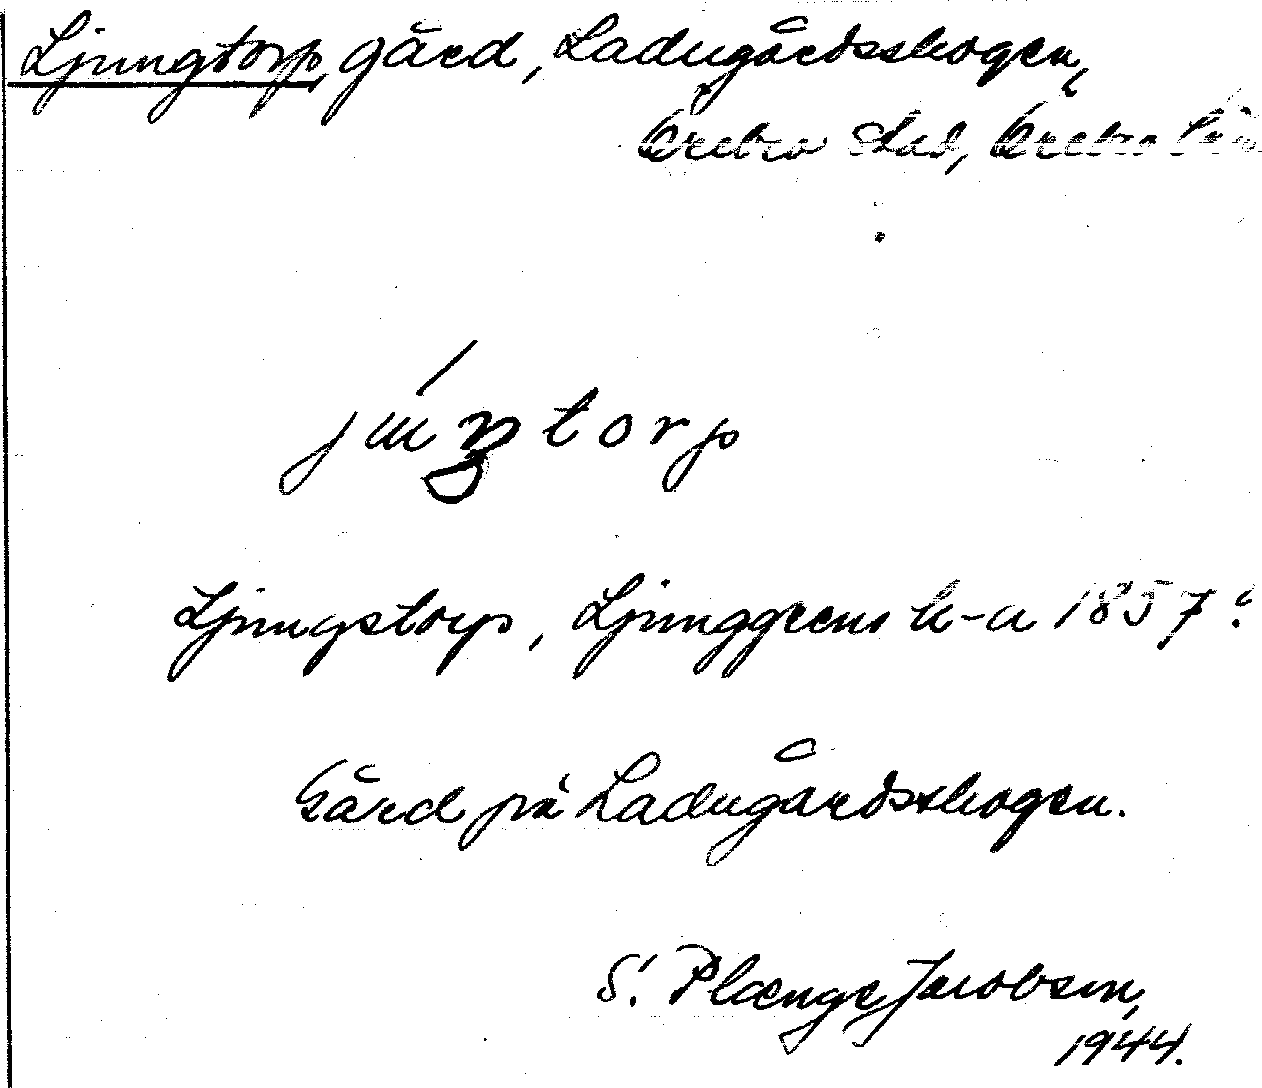 Ljungtorp, gård, Ladugårdsskogen,
Örebro stad, Örebro län
Ljungstorp, Ljunggrens h-a 1857.
Gård på Ladugårdsskogen.
S. Plænge Jacobson,
1944.